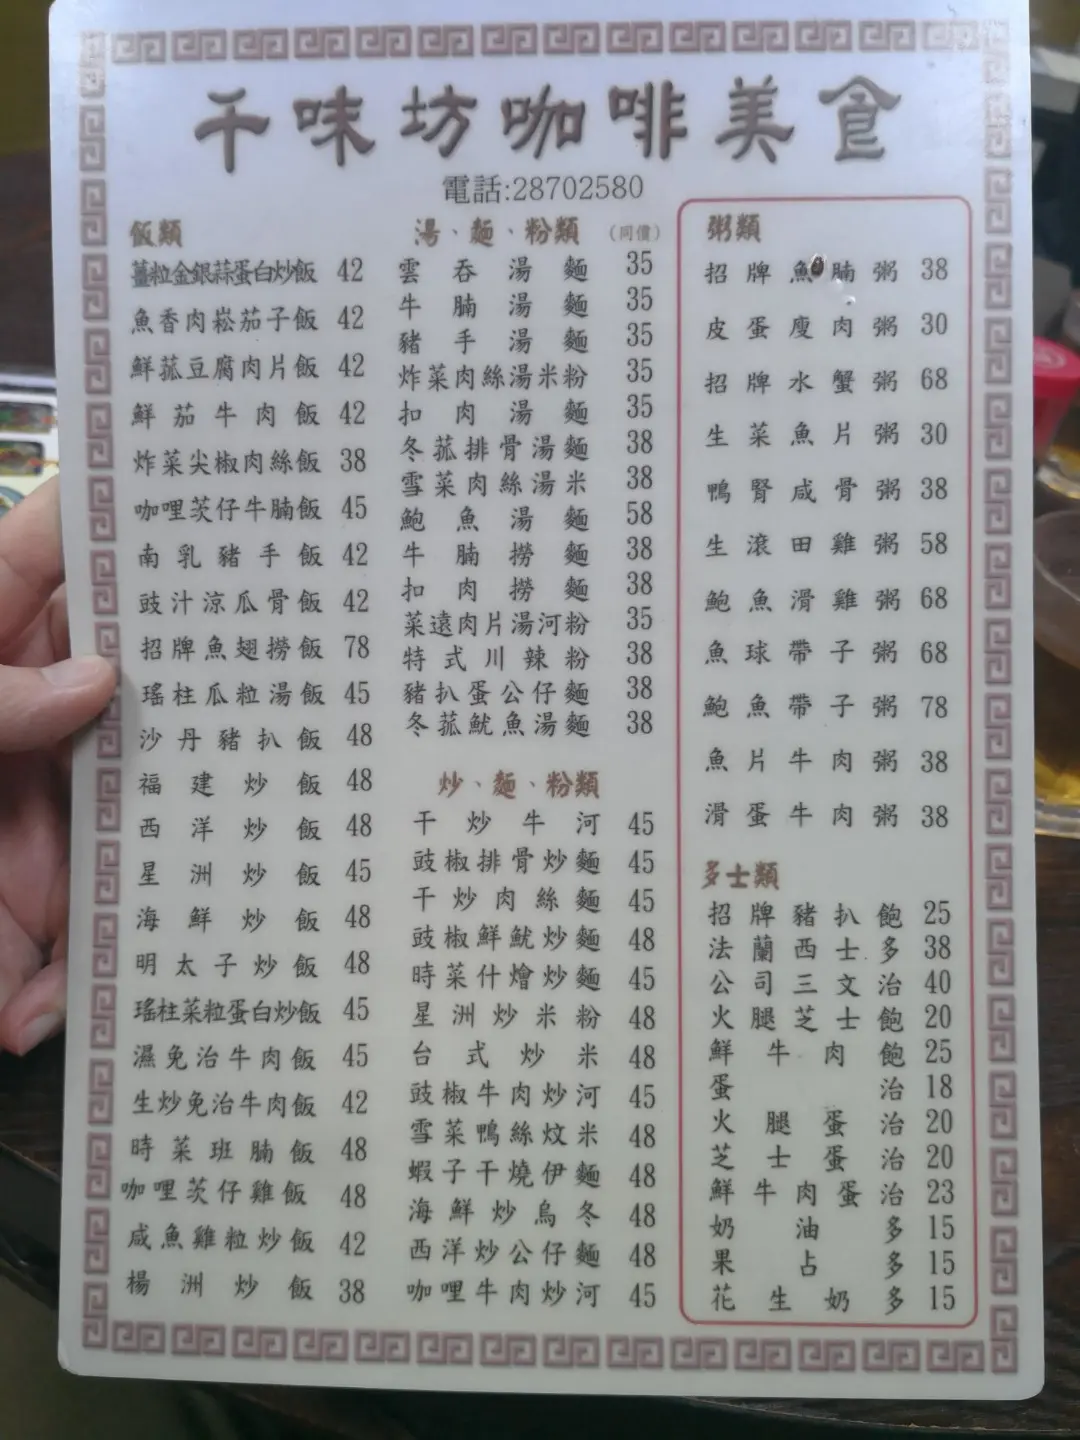 千味坊咖啡美食
電話:28702580
飯類
薑粒金銀蒜蛋白炒飯 42
魚香肉崧茄子飯 42
鮮菰豆腐肉片飯 42
鮮茄牛肉飯 42
炸菜尖椒肉絲飯 38
咖哩茨仔牛腩飯 45
南乳豬手飯 42
豉汁涼瓜骨飯 42
招牌魚翅撈飯 78
瑤柱瓜粒湯飯 45
沙丹豬扒飯 48
福建炒飯 48
西洋炒飯 48
星洲炒飯 45
海鮮炒飯 48
明太子炒飯 48
瑤柱菜粒蛋白炒飯 45
濕免治牛肉飯 45
生炒免治牛肉飯 42
時菜班腩飯 48
咖哩茨仔雞飯 48
咸魚雞粒炒飯 42
楊洲炒飯 38
湯、麵、粉類 (同價)
雲吞湯麵 35
牛腩湯麵 35
豬手湯麵 35
炸菜肉絲湯米粉 35
扣肉湯麵 35
冬菰排骨湯麵 38
雪菜肉絲湯米 38
鮑魚湯麵 58
牛腩撈麵 38
扣肉撈麵 38
菜遠肉片湯河粉 35
特式川辣粉 38
豬扒蛋公仔麵 38
冬菰魷魚湯麵 38
炒、麵、粉類
干炒牛河 45
豉椒排骨炒麵 45
干炒肉絲麵 45
豉椒鮮魷炒麵 48
時菜什燴炒麵 45
星洲炒米粉 48
台式炒米 48
豉椒牛肉炒河 45
雪菜鴨絲炆米 48
蝦子干燒伊麵 48
海鮮炒烏冬 48
西洋炒公仔麵 48
咖哩牛肉炒河 45
粥類
招牌魚腩粥 38
皮蛋瘦肉粥 30
招牌水蟹粥 68
生菜魚片粥 30
鴨腎咸骨粥 38
生滾田雞粥 58
鮑魚滑雞粥 68
魚球帶子粥 68
鮑魚帶子粥 78
魚片牛肉粥 38
滑蛋牛肉粥 38
多士類
招牌豬扒飽 25
法蘭西士多 38
公司三文治 40
火腿芝士飽 20
鮮牛肉飽 25
蛋治 18
火腿蛋治 20
芝士蛋治 20
鮮牛肉蛋治 23
奶油多 15
果占多 15
花生奶多 15